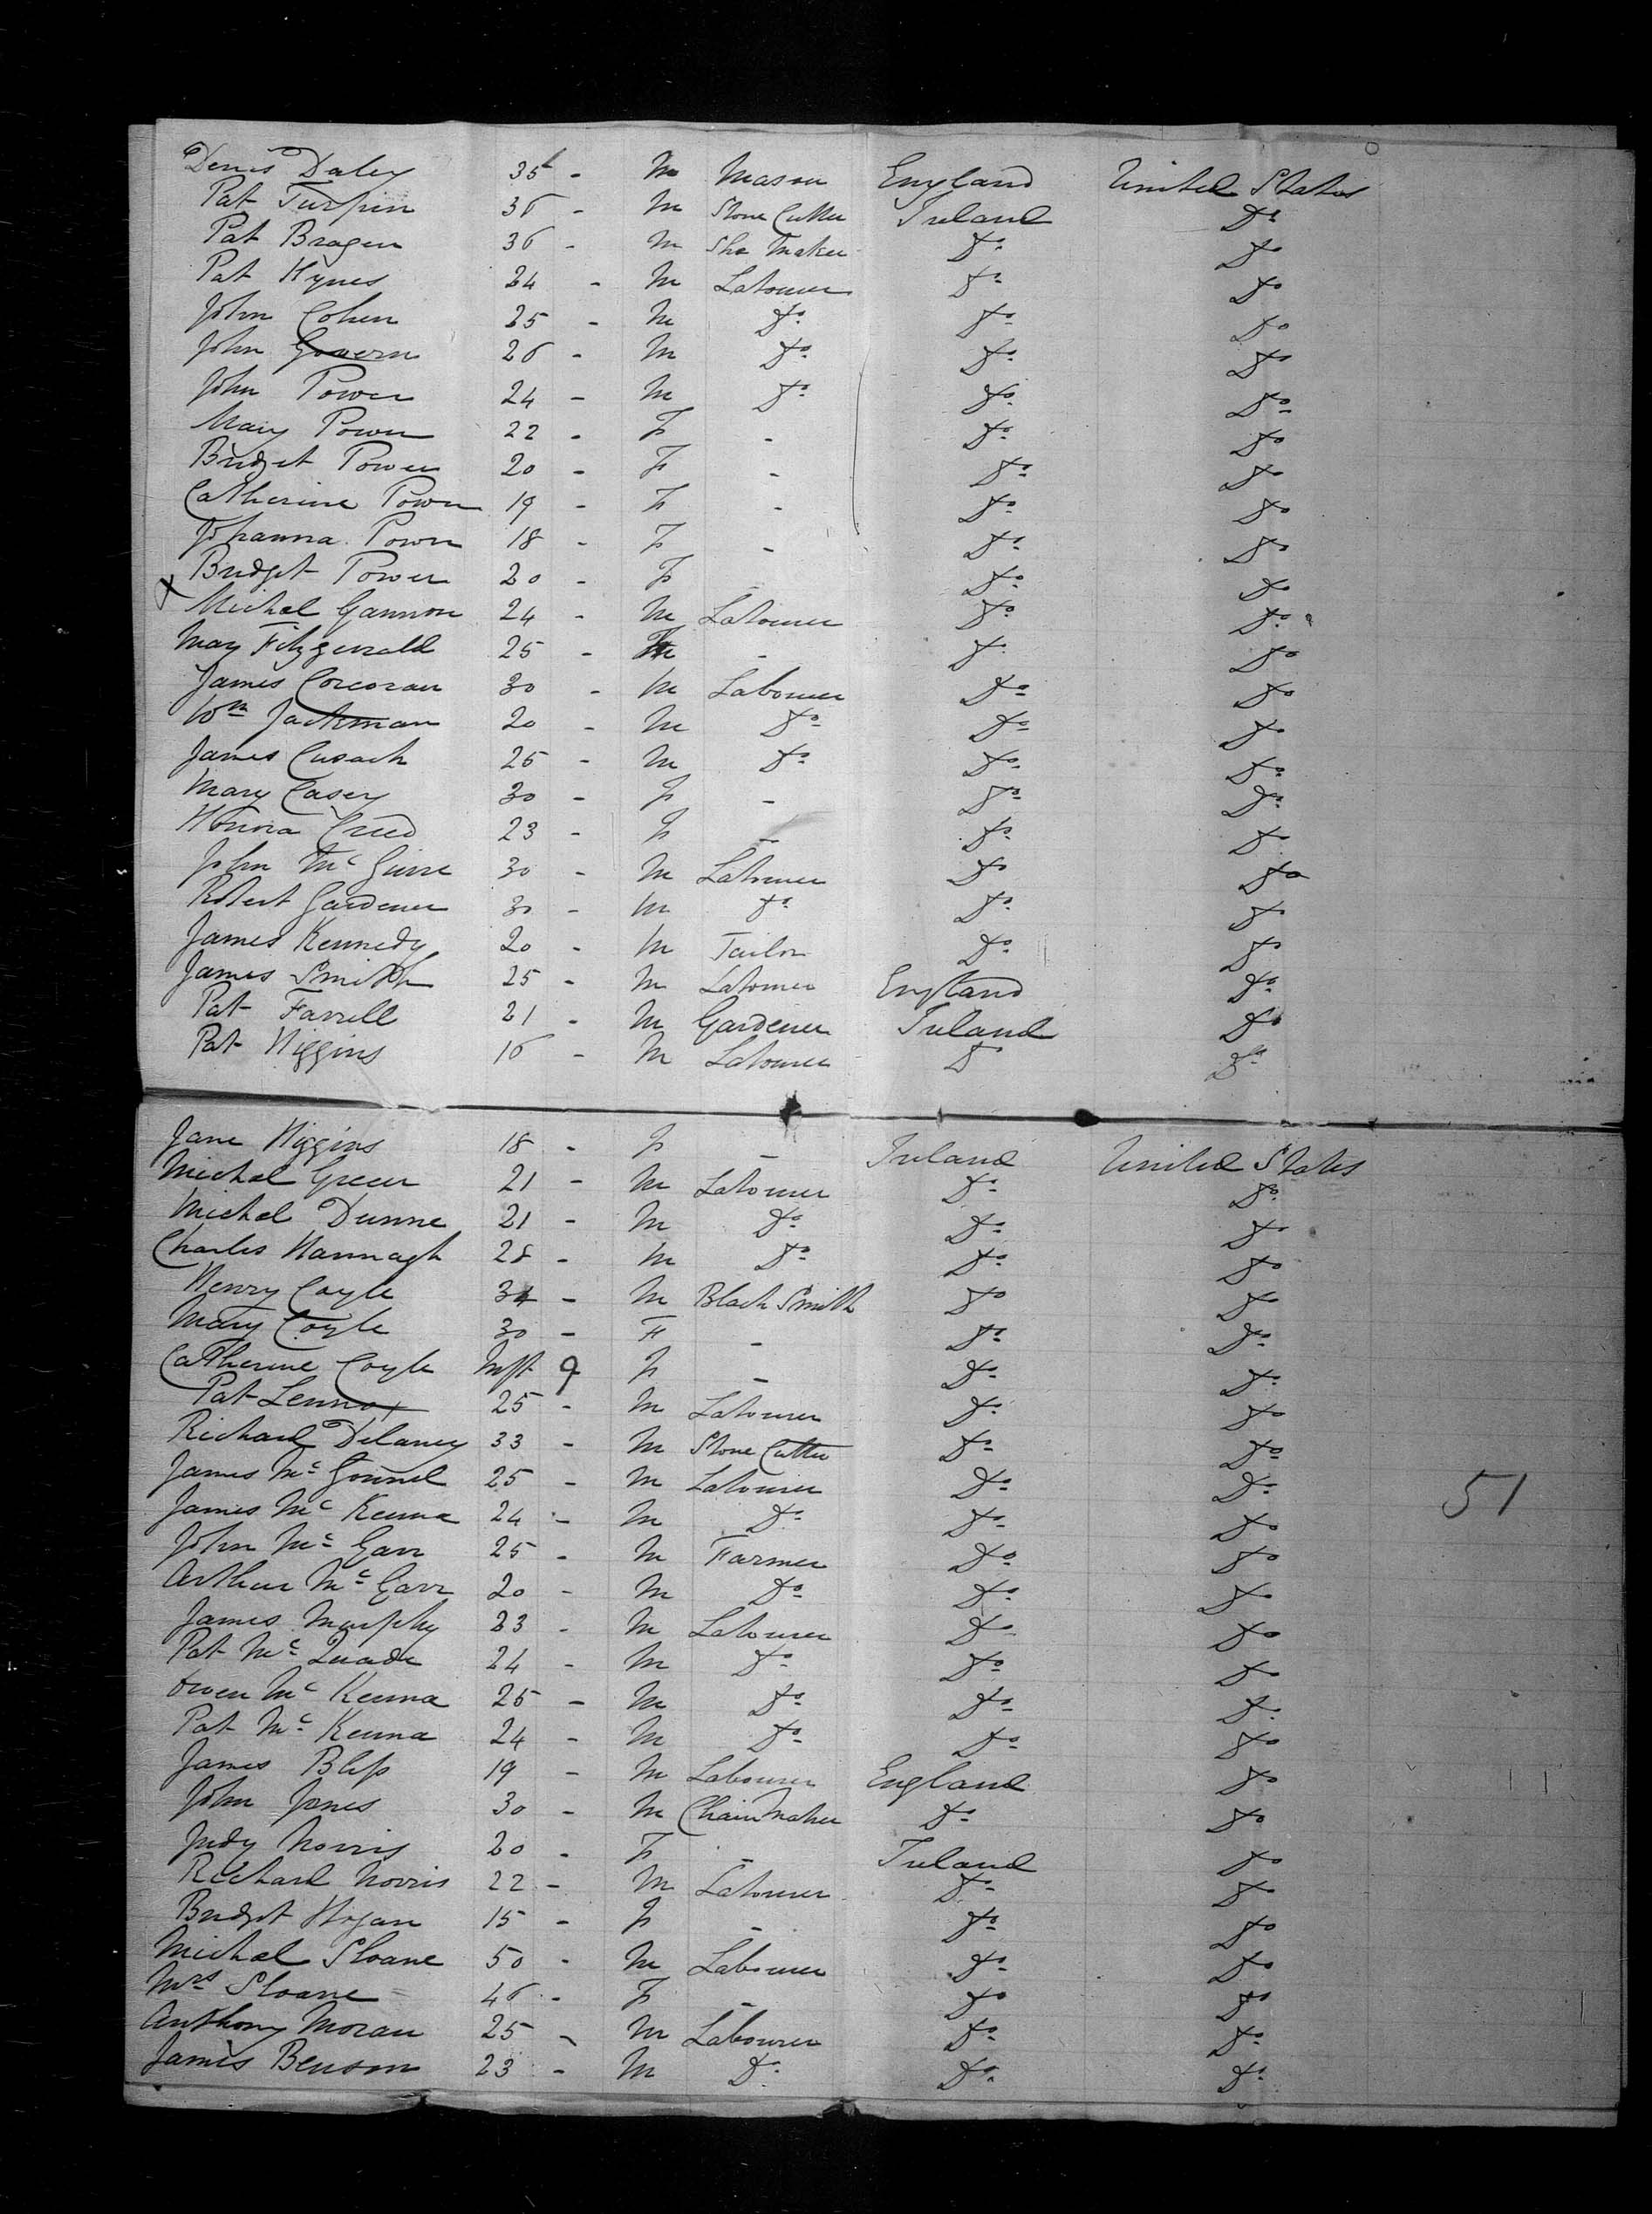 Denis Daley 35 - M Mason England United States
Pat Turpin 36 - M Stone Cutter Ireland Do
Pat Bragen 36 - M Shoe Maker Do Do
Pat Hynes 24 - M Labourer Do Do
John Cohen 25 - M Do Do Do
John Govern 26 - M Do Do Do
John Power 24 - M Do Do Do
Mary Power 22 - F - Do Do
Bridget Power 20 - F - Do Do
Catherine Power 19 - F - Do Do
Johanna Power 18 - F - Do Do
Bridget Power 20 - F - Do Do
x Michel Gannon 24 - M Labourer Do Do
Mary Fitzgerald 25 - F - Do Do
James Corcoran 30 - M Labourer Do Do
Wm Jackman 20 - M Do Do Do
James Cusack 25 - M Do Do Do
Mary Casey 30 - F - Do Do
Honora Creed 23 - F - Do Do
John Mc Guire 30 - M Labourer Do Do
Robert Gardener 30 - M Do Do Do
James Kennedy 20 - M Tailor Do Do
James Smith 25 - M Labourer England Do
Pat Farrell 21 - M Gardener Ireland Do
Pat Higgins 16 - M Labourer Do Do
Jane Higgins 18 - F - Ireland United States
Michel Greer 21 - M Labourer Do Do
Michel Dunne 21 - M Do Do Do
Charles Hannagh 28 - M Do Do Do
Henry Coyle 34 - M Black Smith Do Do
Mary Coyle 30 - F - Do Do
Catherine Coyle Inft 9 F - Do Do
Pat Lennox 25 - M Labourer Do Do
Richard Delaney 33 - M Stone Cutter Do Do
James Mc Gonnel 25 - M Labourer Do Do
51
James Mc Kenna 24 - M Do Do Do
John Mc Garr 25 - M Farmer Do Do
Arthur Mc Garr 20 - M Do Do Do
James Murphy 23 - M Labourer Do Do
Pat Mc Quade 24 - M Do Do Do
Owen Mc Kenna 25 - M Do Do Do
Pat Mc Kenna 24 - M Do Do Do
James Bliss 19 - M Labourer England Do
John Jones 30 - M Chain Maker Do Do
Judy Norris 20 - F - Ireland Do
Richard Norris 22 - M Labourer Do Do
Bridget Hogan 15 - F - Do Do
Michel Sloane 50 - M Labourer Do Do
Mrs Sloane 46 - F - Do Do
Anthony Moran 25 - M Labourer Do Do
James Benson 23 - M Do Do Do